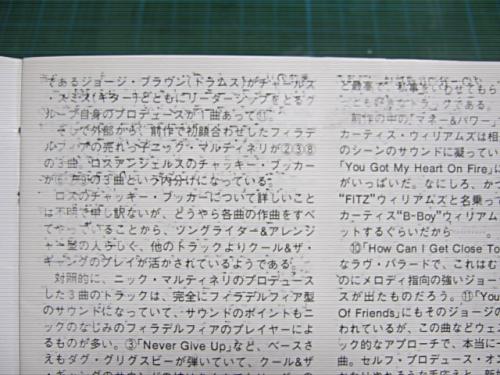 であるジョージ・ブラウン(ドラムス)がチャールズ
・スミス(ギター)とともにリーダーシップをとるグ
ループ自身のプロデュースが1曲あって⑪。
そして外部から、前作で初顔合わせしたフィラデ
ルフィアの売れっ子ニック・マルティネリが②③⑧
の3曲、ロスアンジェルスのチャッキー・ブッカー
が の3曲という内分けになっている。
ロスのチャッキー・ブッカーについて詳しいこと
は不明で申し訳ないが、どうやら各曲の作曲をすべ
てやっていることから、ソングライター&アレンジ
ャー型の人らしく、他のトラックよりクール&ザ・
ギャングのプレイが活かされているようである。
対照的に、ニック・マルティネリのプロデュース
した3曲のトラックは、完全にフィラデルフィア型
のサウンドになっていて、サウンドのポイントもニ
ックのなじみのフィラデルフィアのプレイヤーによ
るものが多い。③「Never Give Up」など、ベースさ
えもダグ・グリグスビーが弾いていて、クール&ザ・
と最高で、私事をいわせてもら
トラックである。
前作の中の「マネー&パワー」
カーティス・ウィリアムズは相
のシーンのサウンドに凝ってい
「You Got My Heart On Fire」に
がいっぱいだ。なにしろ、かつ
"FITZ"ウィリアムズと名乗って
カーティス"B-Boy"ウィリアム
ットするぐらいだから
⑩「How Can I Get Close To
なラヴ・バラードで、これはむ
のにメロディ指向の強いジョー
スが出たものだろう。⑪「You
Of Friends」にもそのジョージの
われているが、この曲などウェ
ック的なアプローチで、本当に一
曲。セルフ・プロデュース・オ